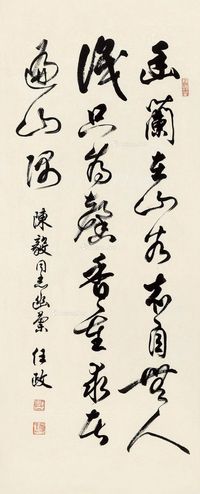 幽蘭在山谷本自無人
識只為馨香重求者
遍山隅
陳毅同志幽蘭 任政